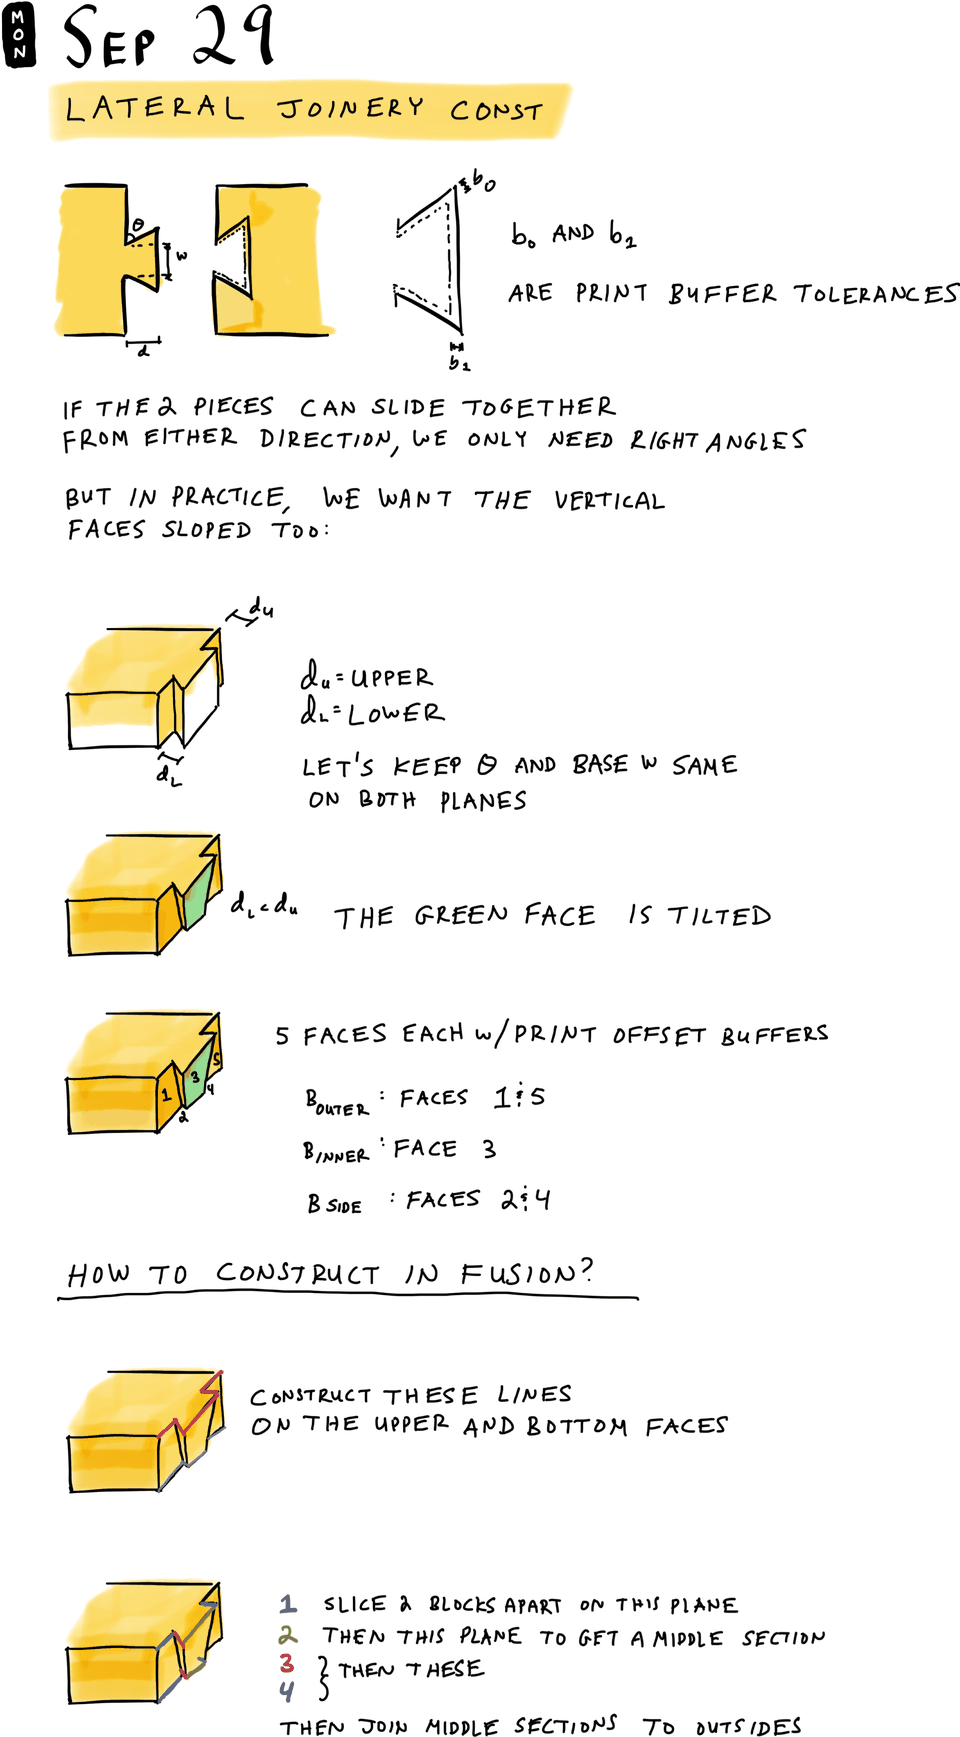 MON
SEP 29
LATERAL JOINERY CONST
θ
w
d
b0
b1
b0 AND b1
ARE PRINT BUFFER TOLERANCES
IF THE 2 PIECES CAN SLIDE TOGETHER
FROM EITHER DIRECTION, WE ONLY NEED RIGHT ANGLES
BUT IN PRACTICE, WE WANT THE VERTICAL
FACES SLOPED TOO:
du
dL
du = UPPER
dL = LOWER
LET'S KEEP θ AND BASE W SAME
ON BOTH PLANES
dL < du
THE GREEN FACE IS TILTED
1
2
3
4
5
5 FACES EACH w/PRINT OFFSET BUFFERS
BOUTER : FACES 1 & 5
BINNER : FACE 3
BSIDE : FACES 2 & 4
HOW TO CONSTRUCT IN FUSION?
CONSTRUCT THESE LINES
ON THE UPPER AND BOTTOM FACES
1 SLICE 2 BLOCKS APART ON THIS PLANE
2 THEN THIS PLANE TO GET A MIDDLE SECTION
3 } THEN THESE
4
THEN JOIN MIDDLE SECTIONS TO OUTSIDES